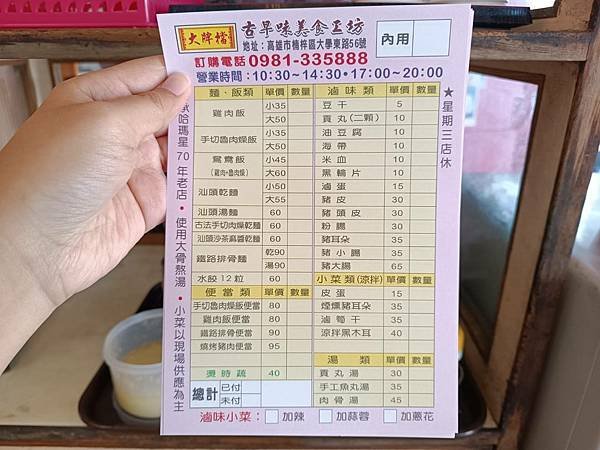 大牌檔 古早味美食工坊
地址：高雄市楠梓區大學東路56號
內用
訂購電話 0981-335888
營業時間：10:30~14:30•17:00~20:00
麵、飯類 單價 數量
雞肉飯 小35
大50
手切魯肉燥飯 小35
大50
鴛鴦飯 小45
(雞肉+魯肉燥) 大60
汕頭乾麵 小50
大55
汕頭湯麵 60
古法手切肉燥乾麵 60
汕頭沙茶麻醬乾麵 60
鐵路排骨麵 乾90
湯90
水餃12粒 60
便當類 單價 數量
手切魯肉燥飯便當 80
雞肉飯便當 80
鐵路排骨便當 90
燒烤豬肉便當 95
燙時蔬 40
總計 已付
未付
滷味類 單價 數量
豆干 5
貢丸(二顆) 10
油豆腐 10
海帶 10
米血 10
黑輪片 10
滷蛋 15
豬皮 30
豬頭皮 30
粉腸 30
豬耳朵 35
豬小腸 35
豬大腸 65
小菜類(涼拌) 單價 數量
皮蛋 15
煙燻豬耳朵 35
滷筍干 35
涼拌黑木耳 40
湯類 單價 數量
貢丸湯 30
手工魚丸湯 35
肉骨湯 45
滷味小菜： 加辣 加蒜蓉 加蔥花
承哈瑪星70年老店•使用大骨熬湯•小菜以現場供應為主
★星期三店休